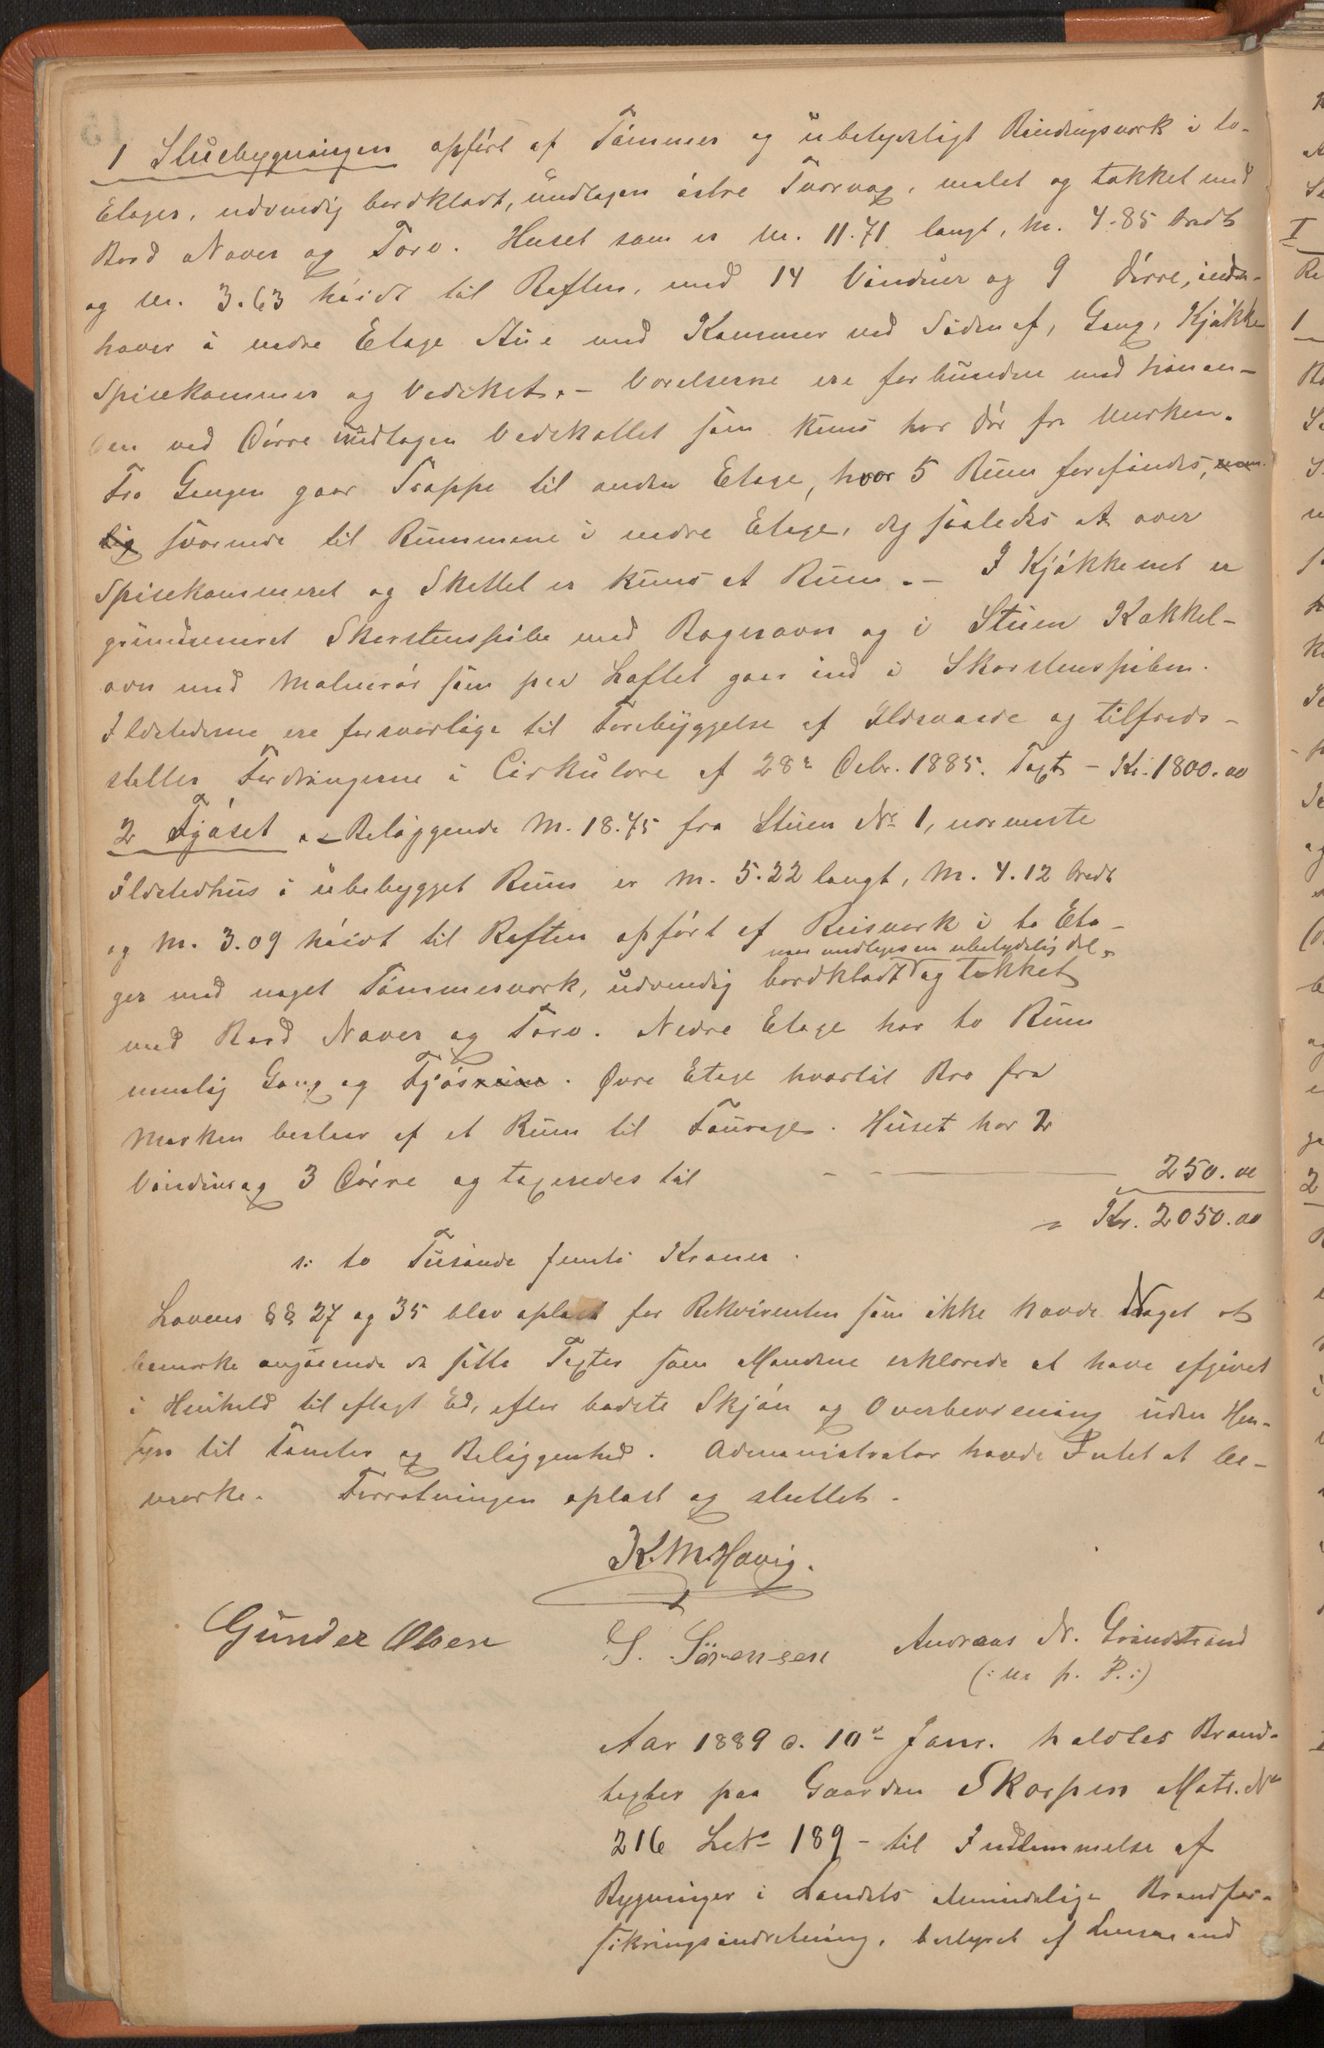 1 Stuebygningen opført af Tømmer og ubetydeligt Bindingsværk i to-
Etager, udvendig bordklædt, undtagen østre Tværvæg, malet og tækket med
Bord Næver og Torv. Huset som er M. 11.71 langt, M. 4.85 bredt
og M. 3.63 høidt til Raften, med 14 Vinduer og 9 Dørre, inde-
haver i nedre Etage Stue med Kammer ved Siden af, Gang, Kjøkken
Spisekammer og Vedskot. - Værelserne ere forbunden med hinan-
den ved Dørre undtagen Vedskottet som kuns har Dør fra Marken.
Fra Gangen gaar Trappe til anden Etage, hvor 5 Rum forefindes, nem-
lig svarende til Rummene i nedre Etage, dog saaledes at over
Spisekammeret og Skottet er kuns et Rum. - I Kjøkkenet er
grundmuret Skorstenspibe med Bagerovn og i Stuen Kakkel-
ovn med Malmrør som paa Loftet gaar ind i Skorstenspiben.
Ildstederne ere forsvarlige til Forebyggelse af Ildsvaade og tilfreds-
stiller Fordringerne i Cirkulære af 28de Decbr. 1885. Taxt - Kr. 1800.00
2 Fjøset - Beliggende M. 18.75 fra Stuen No 1, nærmeste
Ildstedhus i ubebygget Rum er M. 5.22 langt, M. 4.12 bredt
og M. 3.09 høidt til Raften opført af Reisværk i to Eta-
naar undtages en ubetydelig del,
ger med noget Tømmerværk, udvendig bordklædt og tækket
med Bord Næver og Torv. Nedre Etage har to Rum
nemlig Gang og Fjøs. Øvre Etage hvortil Bro fra
Marken bestaar af et Rum til Fourage. Huset har 2
Vinduer og 3 Dørre og taxeredes til - - 250.00
= Kr. 2050.00
s: to Tusinde femti Kroner.
Lovens §§ 27 og 35 blev oplæst for Rekvirenten som ikke havde Noget at
bemærke angaaende de satte Taxter som Mændene erklærede at have afgivet
i Henhold til aflagt Ed, efter bedste Skjøn og Overbevisning uden Hen-
syn til Tomter og Beliggenhed. Administrator havde Intet at be-
mærke. Forretningen oplæst og sluttet.
K. M. Havig.
Gunder Olsen S. Sørensen Andreas N. Grindstrand
(: m. p. P. :)
Aar 1889 d. 10de Janr. holdtes Brand-
taxter paa Gaarden Skorpen Matr. No
216 LNo 189 - til Indlemmelse af
Bygninger i Landets almindelige Brandfor-
sikringsindretning, bestyret af Lensmand